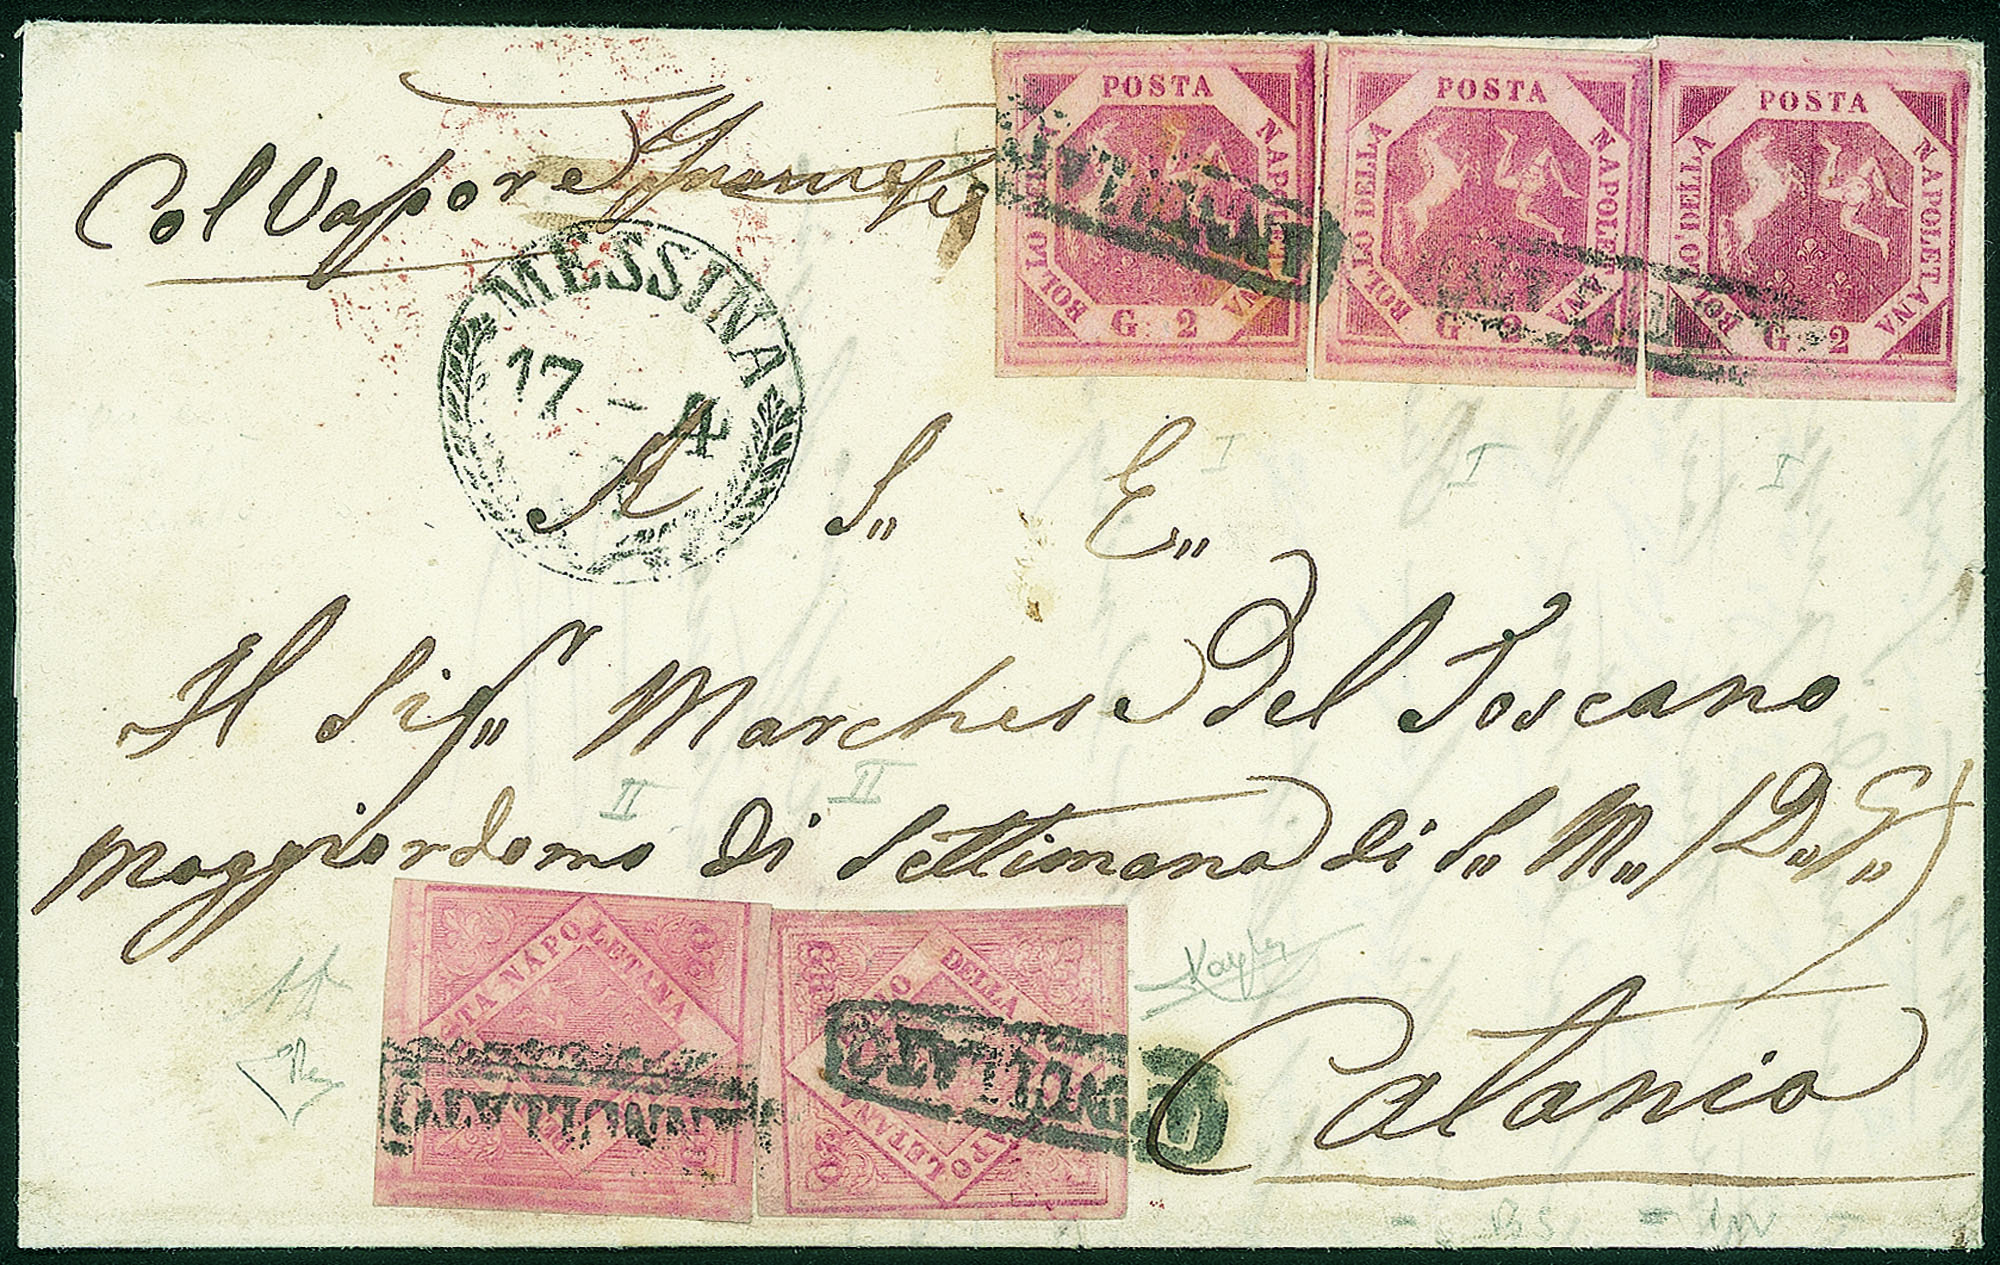 Col Vapore Francese
BOLLO DELLA POSTA NAPOLETANA
G 2
BOLLO DELLA POSTA NAPOLETANA
G 2
BOLLO DELLA POSTA NAPOLETANA
G 2
ANNULLATO
MESSINA
17 - 4
A S„ E„
I I I
Il Sigr„ Marchese Del Toscano
II II
Maggiordomo di Settimana di S„ M„ (D„ G„)
STA NAPOLETANA
ANNULLATO
DELLA
NAPOLETANA
ANNULLATO
Catania